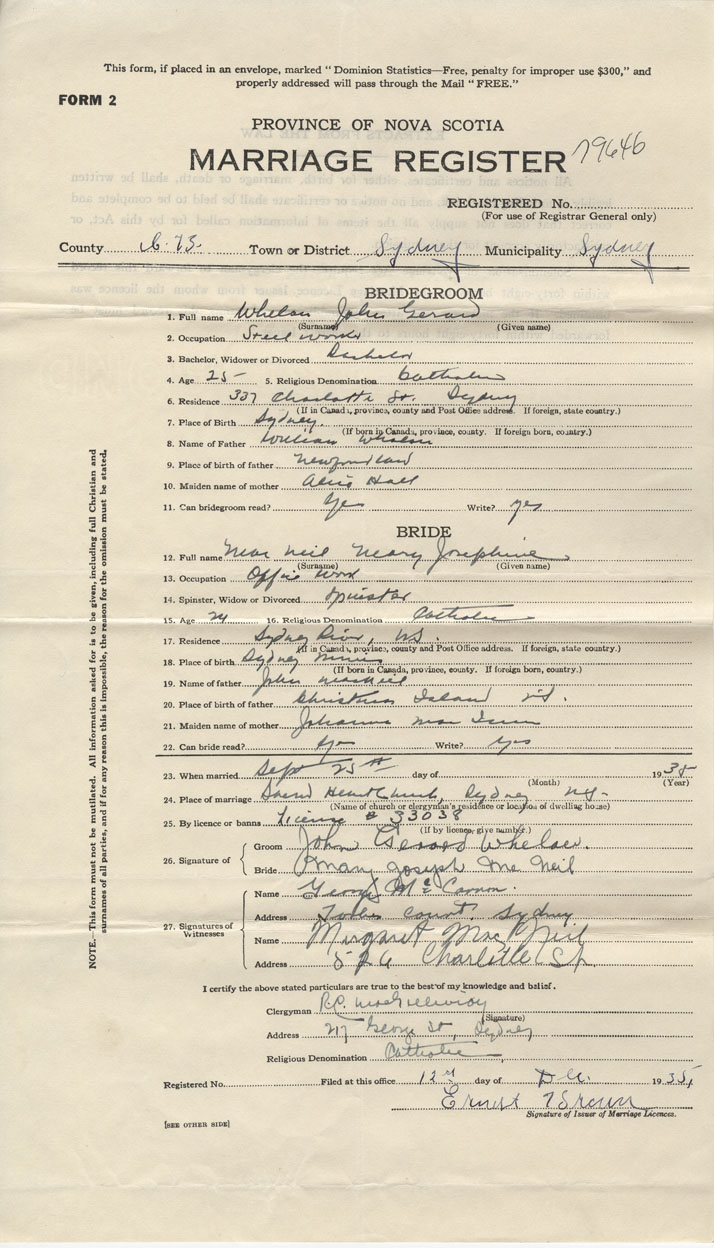 This form, if placed in an envelope, marked "Dominion Statistics—Free, penalty for improper use $300," and
properly addressed will pass through the Mail "FREE."
FORM 2
PROVINCE OF NOVA SCOTIA
MARRIAGE REGISTER 79646
REGISTERED No.
(For use of Registrar General only)
County C.B. Town or District Sydney Municipality Sydney
BRIDEGROOM
1. Full name Whelan John Gerard
(Surname) (Given name)
2. Occupation Steel worker
3. Bachelor, Widower or Divorced Bachelor
4. Age 25 5. Religious Denomination Catholic
6. Residence 337 Charlotte St. Sydney
(If in Canada, province, county and Post Office address. If foreign, state country.)
7. Place of Birth Sydney
(If born in Canada, province, county. If foreign born, country.)
8. Name of Father William Whelan
9. Place of birth of father Newfoundland
10. Maiden name of mother Alice Hall
11. Can bridegroom read? Yes Write? yes
BRIDE
12. Full name Mac Neil Mary Josephine
(Surname) (Given name)
13. Occupation Office Work
14. Spinster, Widow or Divorced Spinster
15. Age 24 16. Religious Denomination Catholic
17. Residence Sydney River, N.S.
(If in Canada, province, county and Post Office address. If foreign, state country.)
18. Place of birth Sydney Mines
(If born in Canada, province, county. If foreign born, country.)
19. Name of father John MacNeil
20. Place of birth of father Christmas Island N.S.
21. Maiden name of mother Johanna Mac
22. Can bride read? Yes Write? Yes
23. When married Sept 25th day of 1935
(Month) (Year)
24. Place of marriage Sacred Heart Church, Sydney N.S.
(Name of church or clergyman's residence or location of dwelling house)
25. By licence or banns License # 33038
(If by licence, give number.)
26. Signature of Groom John Gerard Whelan.
Bride Mary Joseph Mc Neil
27. Signatures of Witnesses
Name George Mc Cannon.
Address court. Sydney
Name Margaret MacNeil
Address 526 Charlotte St.
I certify the above stated particulars are true to the best of my knowledge and belief.
Clergyman R.C. MacGillivray
(Signature)
Address 217 George St, Sydney
Religious Denomination Catholic
Registered No. Filed at this office 12th day of Dec. 1935
Ernest Brown
Signature of Issuer of Marriage Licences.
[SEE OTHER SIDE]
NOTE.—This form must not be mutilated. All information asked for is to be given, including full Christian and
surnames of all parties, and if for any reason this is impossible, the reason for the omission must be stated.